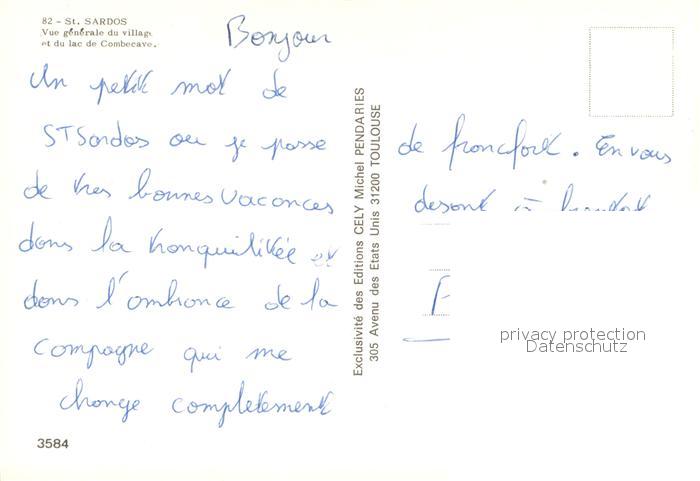 82 - St. SARDOS
Vue générale du village
et du lac de Combecave.
Bonjour
Un petit mot de
ST Sardos ou je passe
de tres bonnes vacances
dans la tranquilitée et
dans l'ambiance de la
campagne qui me
change completement
3584
Exclusivité des Editions CELY Michel PENDARIES
305 Avenue des Etats Unis 31200 TOULOUSE
de francfort. En vous
desant à
privacy protection
Datenschutz